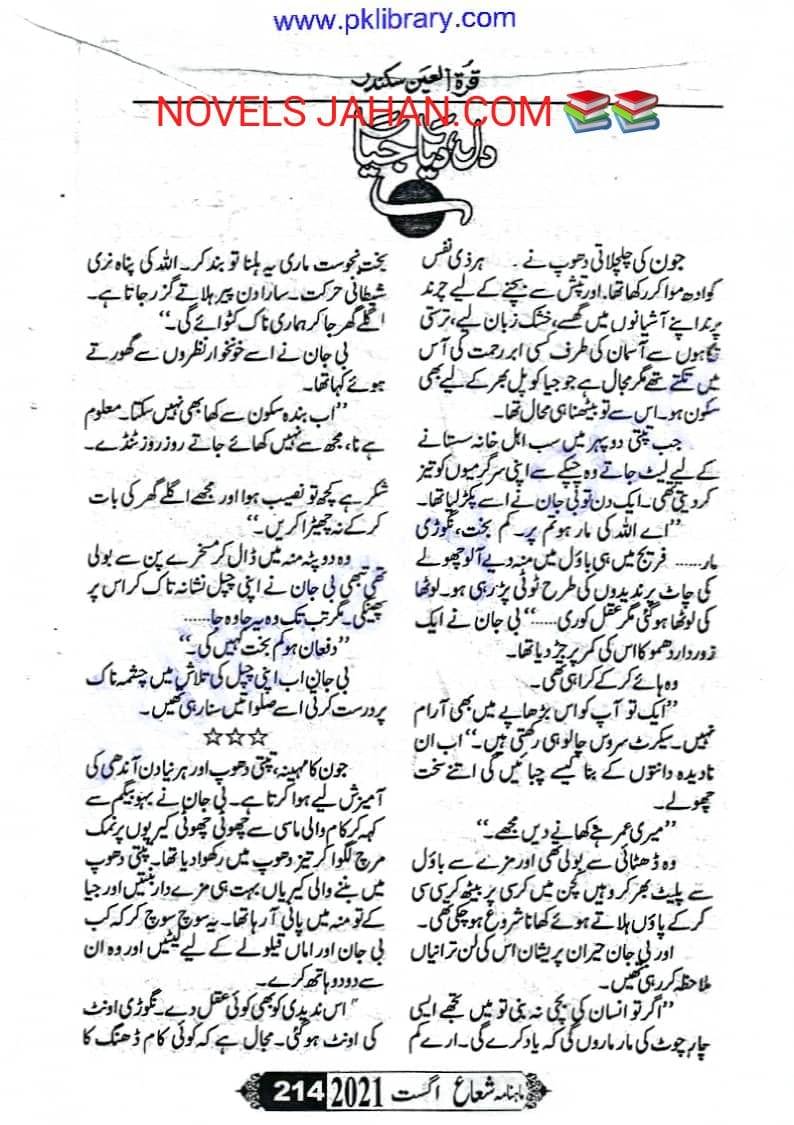 www.pklibrary.com
قرۃ العین سکندر
NOVELS JAHAN.COM
دل، دیا، جیا
جون کی چلچلاتی دھوپ نے ۔ ہر ذی نفس
کو ادھ موا کر رکھا تھا۔ اور تپش سے بچنے کے لیے چرند
پرند اپنے آشیانوں میں گھسے، خشک زبان لیے، ترستی
نگاہوں سے آسمان کی طرف کسی ابر رحمت کی آس
میں تکتے تھے مگر مجال ہے جو جیا کو پل بھر کے لیے بھی
سکون ہو۔ اس سے تو بیٹھنا ہی محال تھا۔
جب تپتی دوپہر میں سب اہل خانہ سستانے
کے لیے لیٹ جاتے وہ چپکے سے اپنی سرگرمیوں کو تیز
کر دیتی تھی۔ ایک دن تو بی جان نے اسے پکڑ لیا تھا۔
’’اے اللہ کی مار ہو تم پر۔ کم بخت، نگوڑی
مار...... فریج میں ہی باؤل میں منہ دیے آلو چھولے
کی چاٹ پر ندیدوں کی طرح ٹوٹی پڑ رہی ہو۔ لوٹھا
کی لوٹھا ہو گئی مگر عقل کوری......‘‘ بی جان نے ایک
زور دار دھموکا اس کی کمر پر جڑ دیا تھا۔
وہ ہائے کر کے کراہی تھی۔
’’ایک تو آپ کو اس بڑھاپے میں بھی آرام
نہیں۔ سیکرٹ سروس چالو ہی رکھتی ہیں۔‘‘ اب ان
نادیدہ دانتوں کے بنا کیسے چبائیں گی اتنے سخت
چھولے۔
’’میری عمر ہے کھانے دیں مجھے۔‘‘
وہ ڈھٹائی سے بولی تھی اور مزے سے باؤل
سے پلیٹ بھر کر وہیں کچن میں کرسی پر بیٹھ کر سی سی
کر کے پاؤں ہلاتے ہوئے کھانا شروع ہو چکی تھی۔
اور بی جان حیران پریشان اس کی لن ترانیاں
ملاحظہ کر رہی تھیں۔
’’اگر تو انسان کی بچی نہ بنی تو میں تجھے ایسی
چار چوٹ کی مار ماروں گی کہ یاد کرے گی۔ ارے کم
بخت نحوست ماری یہ ہلنا تو بند کر۔ اللہ کی پناہ نری
شیطانی حرکت۔ سارا دن پیر ہلاتے گزر جاتا ہے۔
اگلے گھر جا کر ہماری ناک کٹوائے گی۔‘‘
بی جان نے اسے خونخوار نظروں سے گھورتے
ہوئے کہا تھا۔
’’اب بندہ سکون سے کھا بھی نہیں سکتا۔ معلوم
ہے نا، مجھ سے نہیں کھائے جاتے روز روز ٹنڈے۔
شکر ہے کچھ تو نصیب ہوا اور مجھے اگلے گھر کی بات
کر کے نہ چھیڑا کریں۔‘‘
وہ دوپٹہ منہ میں ڈال کر مسخرے پن سے بولی
تھی تبھی بی جان نے اپنی چپل نشانہ تاک کر اس پر
پھینکی۔ مگر تب تک وہ یہ جا وہ جا......
’’دفعان ہو کم بخت کہیں کی۔‘‘
بی جان اب اپنی چپل کی تلاش میں چشمہ ناک
پر درست کرتی اسے صلواتیں سنا رہی تھیں۔
☆☆☆
جون کا مہینہ، تپتی دھوپ اور ہر نیا دن آندھی کی
آمیزش لیے ہوا کرتا ہے۔ بی جان نے بہو بیگم سے
کہہ کر کام والی ماسی سے چھوٹی چھوٹی کیریوں پر نمک
مرچ لگوا کر تیز دھوپ میں رکھوا دیا تھا۔ تپتی دھوپ
میں بننے والی کیریاں بہت ہی مزے دار بنتیں اور جیا
کے تو منہ میں پانی آ رہا تھا۔ یہ سوچ سوچ کر کہ کب
بی جان اور اماں قیلولے کے لیے لیٹیں اور وہ ان
سے دو دو ہاتھ کرے۔
’’اس ندیدی کو بھی کوئی عقل دے۔ نگوڑی اونٹ
کی اونٹ ہو گئی۔ مجال ہے کہ کوئی کام ڈھنگ کا
ماہنامہ شعاع اگست 2021 214